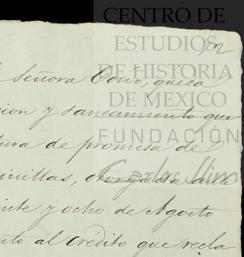 CENTRO DE
ESTUDIOS
DE HISTORIA
DE MEXICO
FUNDACIÓN
Carlos Slim
Señora Cono, queda
cion y saneamiento que
tura de promesa de
inillas, otorgada ante
inte y ocho de Agosto
nto al crédito que recla